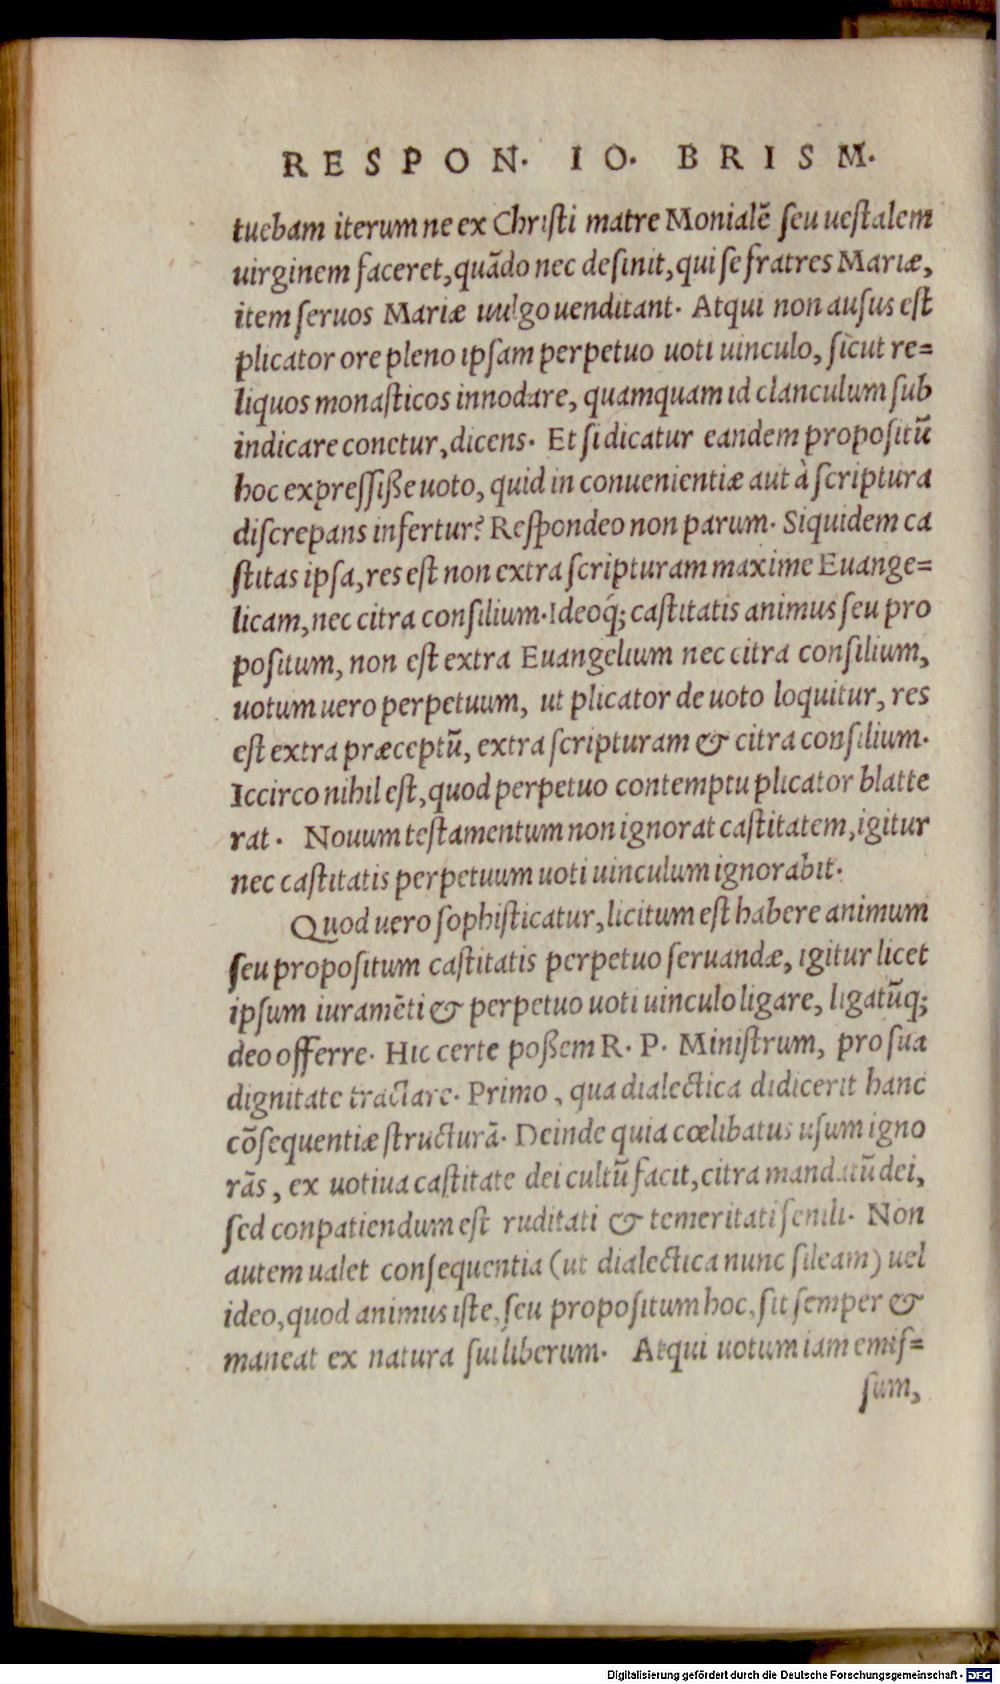 RESPON. IO. BRISM.
tuebam iterum ne ex Christi matre Monialē seu uestalem
uirginem faceret, quādo nec desinit, qui se fratres Mariæ,
item seruos Mariæ uulgo uenditant. Atqui non ausus est
plicator ore pleno ipsam perpetuo uoti uinculo, sicut re=
liquos monasticos innodare, quamquam id clanculum sub
indicare conetur, dicens. Et si dicatur eandem propositū
hoc expressiße uoto, quid in conuenientiæ aut à scriptura
discrepans infertur? Respondeo non parum. Siquidem ca
stitas ipsa, res est non extra scripturam maxime Euange=
licam, nec citra consilium. Ideoq́; castitatis animus seu pro
positum, non est extra Euangelium nec citra consilium,
uotum uero perpetuum, ut plicator de uoto loquitur, res
est extra præceptū, extra scripturam & citra consilium.
Iccirco nihil est, quod perpetuo contemptu plicator blatte
rat. Nouum testamentum non ignorat castitatem, igitur
nec castitatis perpetuum uoti uinculum ignorabit.
Quod uero sophisticatur, licitum est habere animum
seu propositum castitatis perpetuo seruandæ, igitur licet
ipsum iuramēti & perpetuo uoti uinculo ligare, ligatūq;
deo offerre. Hic certe poßem R. P. Ministrum, pro sua
dignitate tractare. Primo, qua dialectica didicerit hanc
cōsequentiæ structurā. Deinde quia cœlibatus usum igno
rās, ex uotiua castitate dei cultū facit, citra mandatū dei,
sed conpatiendum est ruditati & temeritati senili. Non
autem ualet consequentia (ut dialectica nunc sileam) uel
ideo, quod animus iste, seu propositum hoc, sit semper &
maneat ex natura sui liberum. Atqui uotum iam emis=
sum,
Digitalisierung gefördert durch die Deutsche Forschungsgemeinschaft - DFG